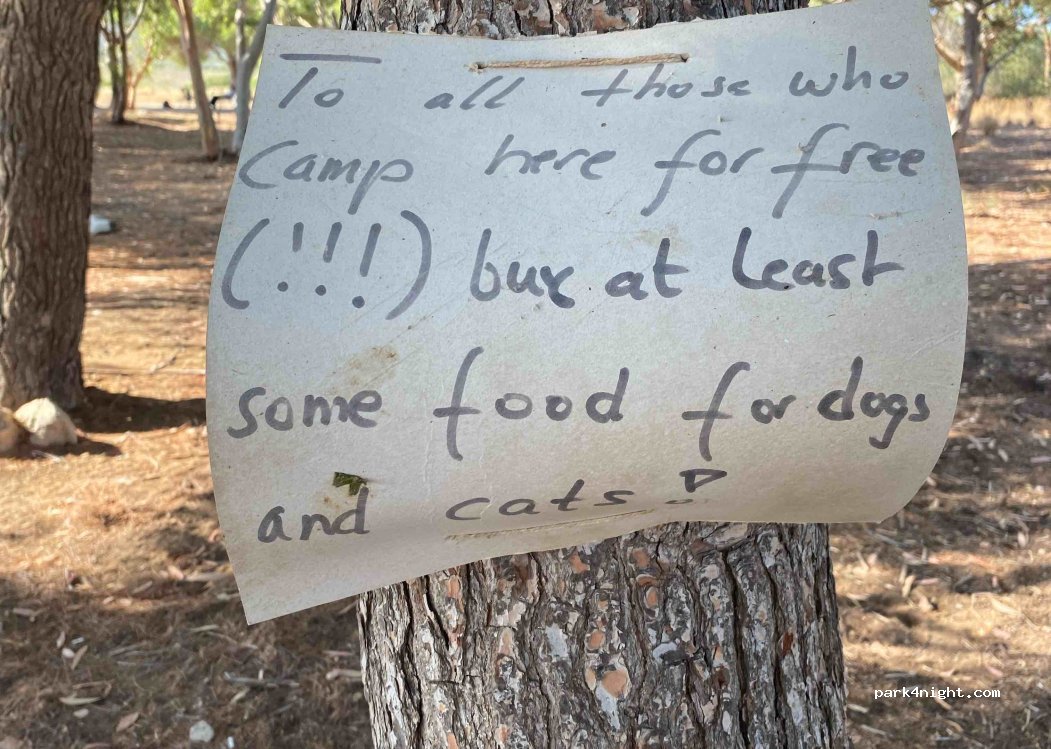 To all those who
camp here for free
(!!!) buy at least
some food for dogs
and cats!
park4night.com